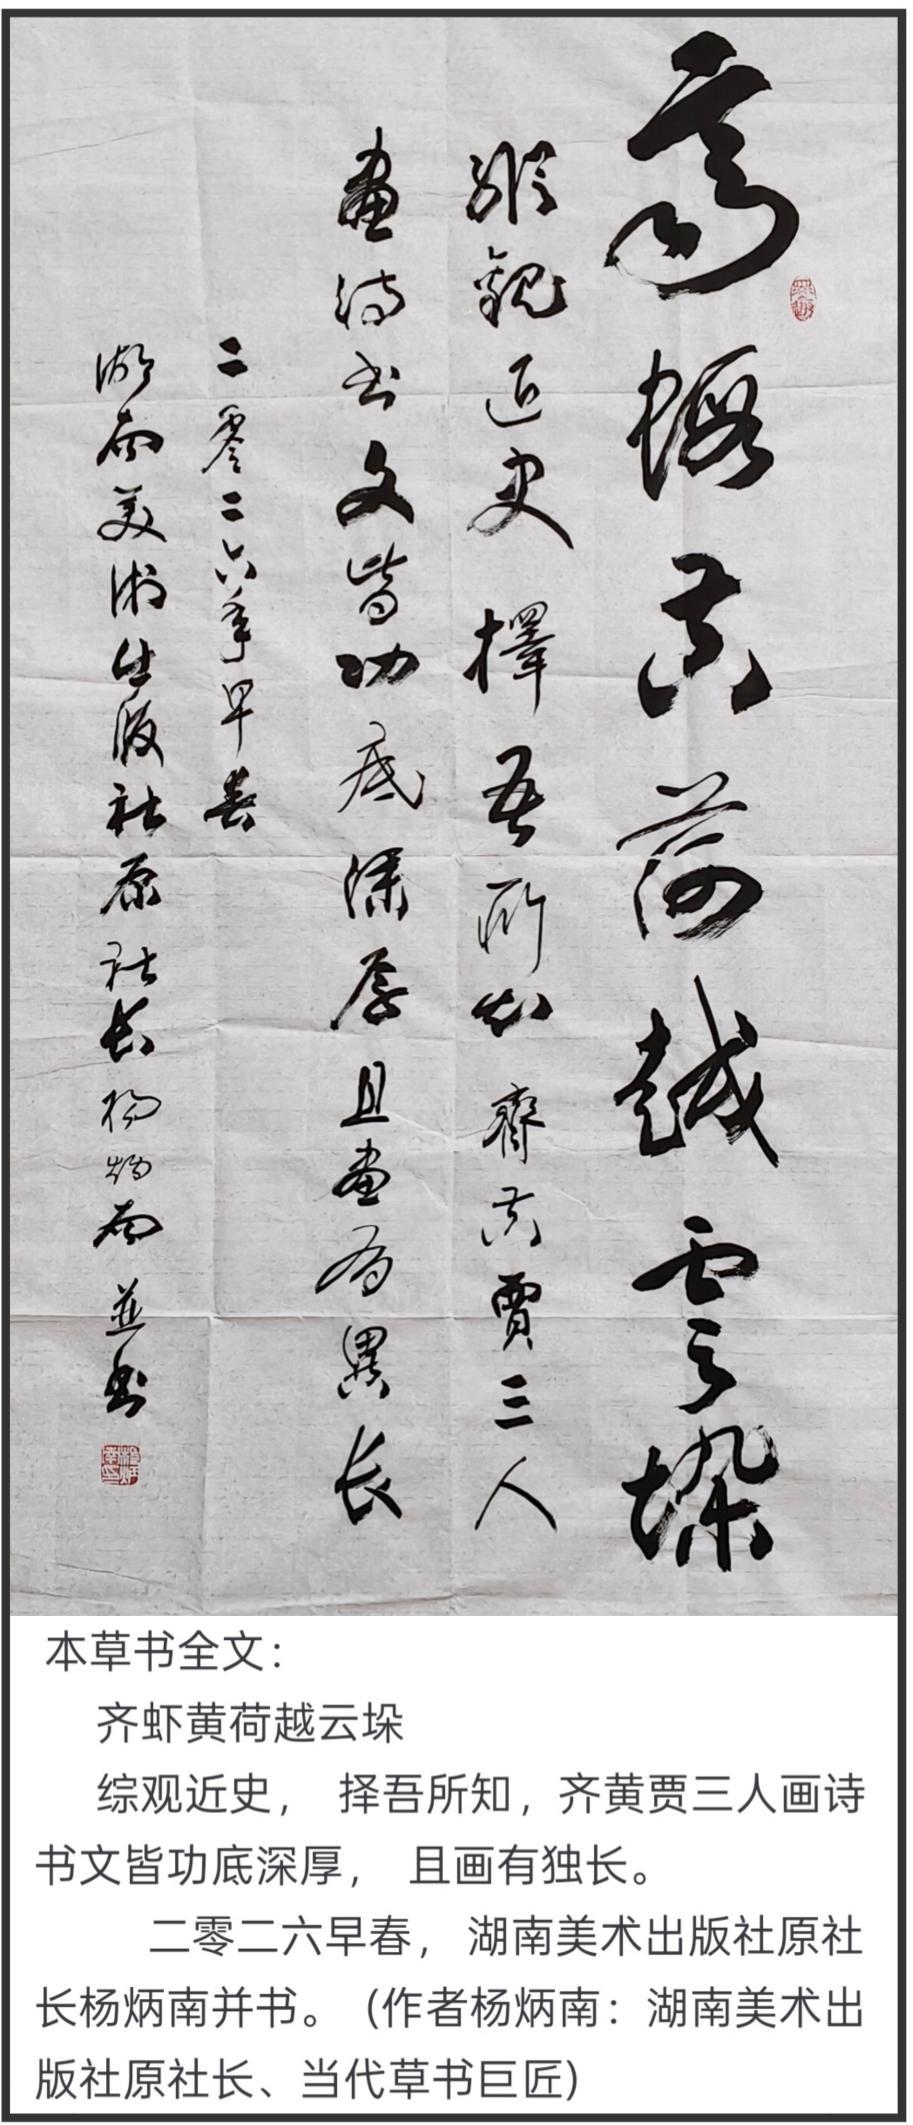 齊蝦黃荷越雲垛
縱觀近史擇吾所知齊黃賈三人
畫詩书文皆功底深厚且畫有異长
二零二六年早春
湖南美術出版社原社长楊炳南並书
本草书全文：
齐虾黄荷越云垛
综观近史， 择吾所知，齐黄贾三人画诗
书文皆功底深厚， 且画有独长。
二零二六早春， 湖南美术出版社原社
长杨炳南并书。 (作者杨炳南：湖南美术出
版社原社长、当代草书巨匠)